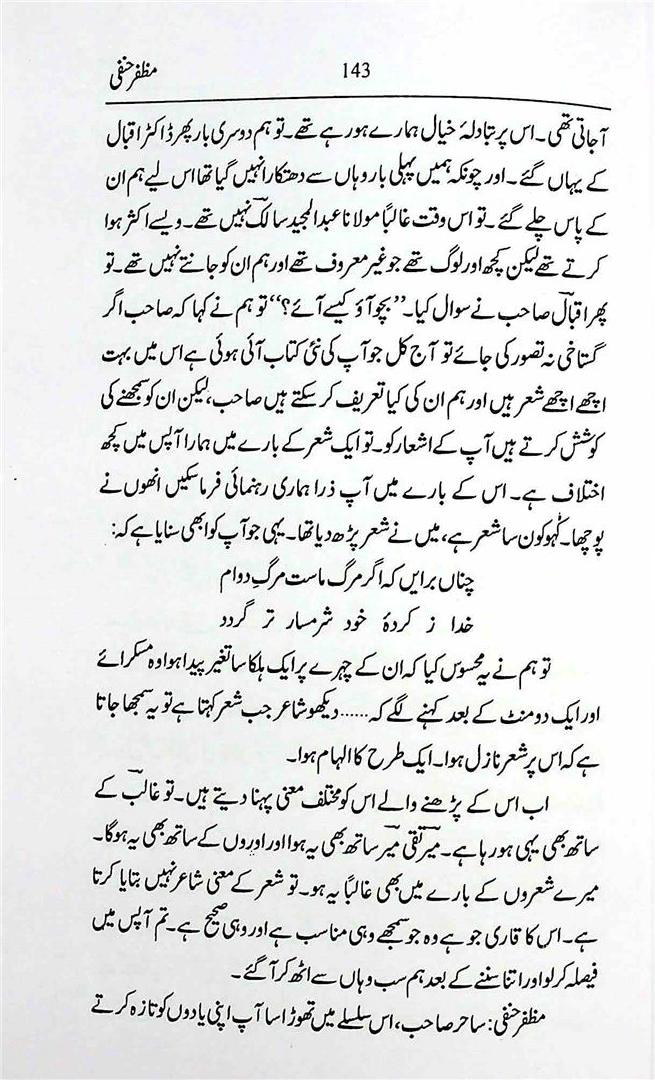 مظفر حنفی
143
آجاتی تھی۔ اس پر تبادلۂ خیال ہمارے ہو رہے تھے۔ تو ہم دوسری بار پھر ڈاکٹر اقبال
کے یہاں گئے۔ اور چونکہ ہمیں پہلی بار وہاں سے دھتکارا نہیں گیا تھا اس لیے ہم ان
کے پاس چلے گئے۔ تو اس وقت غالباً مولانا عبدالمجید سالکؔ نہیں تھے۔ ویسے اکثر ہوا
کرتے تھے لیکن کچھ اور لوگ تھے جو غیر معروف تھے اور ہم ان کو جانتے نہیں تھے۔ تو
پھر اقبالؔ صاحب نے سوال کیا۔ ’’بچو آؤ کیسے آئے؟‘‘ تو ہم نے کہا کہ صاحب اگر
گستاخی نہ تصور کی جائے تو آج کل جو آپ کی نئی کتاب آئی ہوئی ہے اس میں بہت
اچھے اچھے شعر ہیں اور ہم ان کی کیا تعریف کر سکتے ہیں صاحب، لیکن ان کو سمجھنے کی
کوشش کرتے ہیں آپ کے اشعار کو۔ تو ایک شعر کے بارے میں ہمارا آپس میں کچھ
اختلاف ہے۔ اس کے بارے میں آپ ذرا ہماری رہنمائی فرما سکیں انھوں نے
پوچھا۔ کہو کون سا شعر ہے، میں نے شعر پڑھ دیا تھا۔ یہی جو آپ کو ابھی سنایا ہے کہ:
چناں برایں کہ اگر مرگ ماست مرگِ دوام
خدا ز کردۂ خود شرمسار تر گردد
تو ہم نے یہ محسوس کیا کہ ان کے چہرے پر ایک ہلکا سا تغیر پیدا ہوا وہ مسکرائے
اور ایک دو منٹ کے بعد کہنے لگے کہ...... دیکھو شاعر جب شعر کہتا ہے تو یہ سمجھا جاتا
ہے کہ اس پر شعر نازل ہوا۔ ایک طرح کا الہام ہوا۔
اب اس کے پڑھنے والے اس کو مختلف معنی پہنا دیتے ہیں۔ تو غالبؔ کے
ساتھ بھی یہی ہو رہا ہے۔ میرؔ تقی میرؔ ساتھ بھی یہ ہوا اور اوروں کے ساتھ بھی یہ ہوگا۔
میرے شعروں کے بارے میں بھی غالباً یہ ہو۔ تو شعر کے معنی شاعر نہیں بتایا کرتا
ہے۔ اس کا قاری جو ہے وہ جو سمجھے وہی مناسب ہے اور وہی صحیح ہے۔ تم آپس میں
فیصلہ کر لو اور اتنا سننے کے بعد ہم سب وہاں سے اٹھ کر آ گئے۔
مظفر حنفی: ساحر صاحب، اس سلسلے میں تھوڑا سا آپ اپنی یادوں کو تازہ کرتے